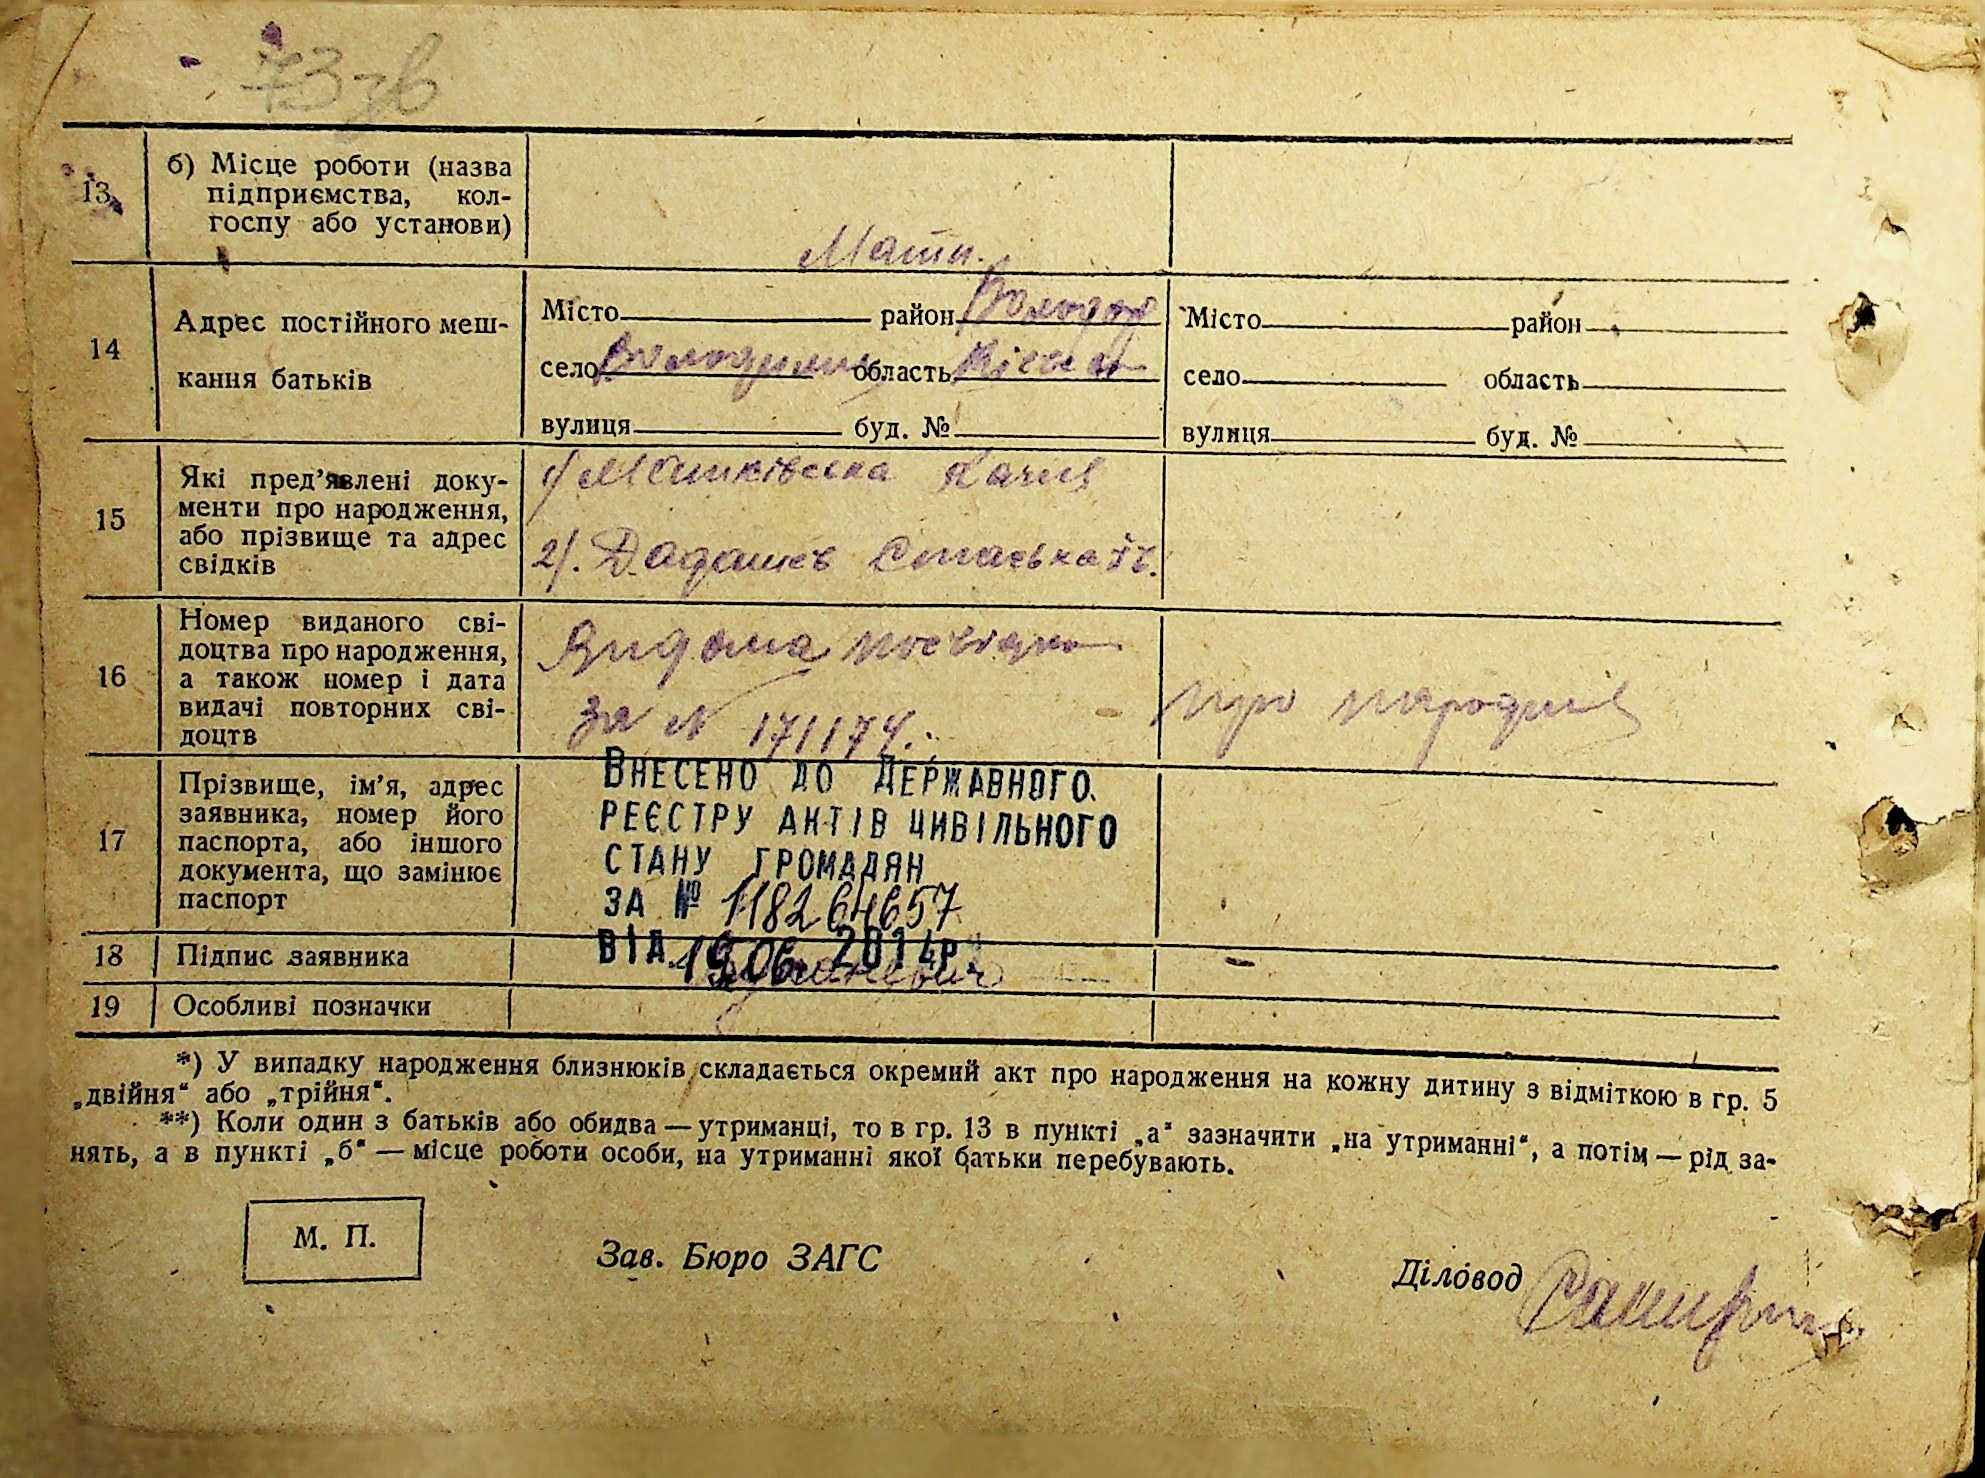 73 зв
13
б) Місце роботи (назва
підприємства, кол-
госпу або установи)
Мати.
14
Адрес постійного меш-
кання батьків
Місто район Володар
село область
вулиця буд. №
Місто район
село область
вулиця буд. №
15
Які пред'явлені доку-
менти про народження,
або прізвище та адрес
свідків
1/
2/.
16
Номер виданого сві-
доцтва про народження,
а також номер і дата
видачі повторних сві-
доцтв
Видана посвідка
за N 171174. про
17
Прізвище, ім'я, адрес
заявника, номер його
паспорта, або іншого
документа, що замінює
паспорт
Внесено до Державного
реєстру актів цивільного
стану громадян
за № 118264657
від 19.06. 2014р
18
Підпис заявника
19
Особливі позначки
*) У випадку народження близнюків складається окремий акт про народження на кожну дитину з відміткою в гр. 5
„двійня“ або „трійня“.
**) Коли один з батьків або обидва — утриманці, то в гр. 13 в пункті „а“ зазначити „на утриманні“, а потім — рід за-
нять, а в пункті „б“ — місце роботи особи, на утриманні якої батьки перебувають.
М. П.
Зав. Бюро ЗАГС
Діловод